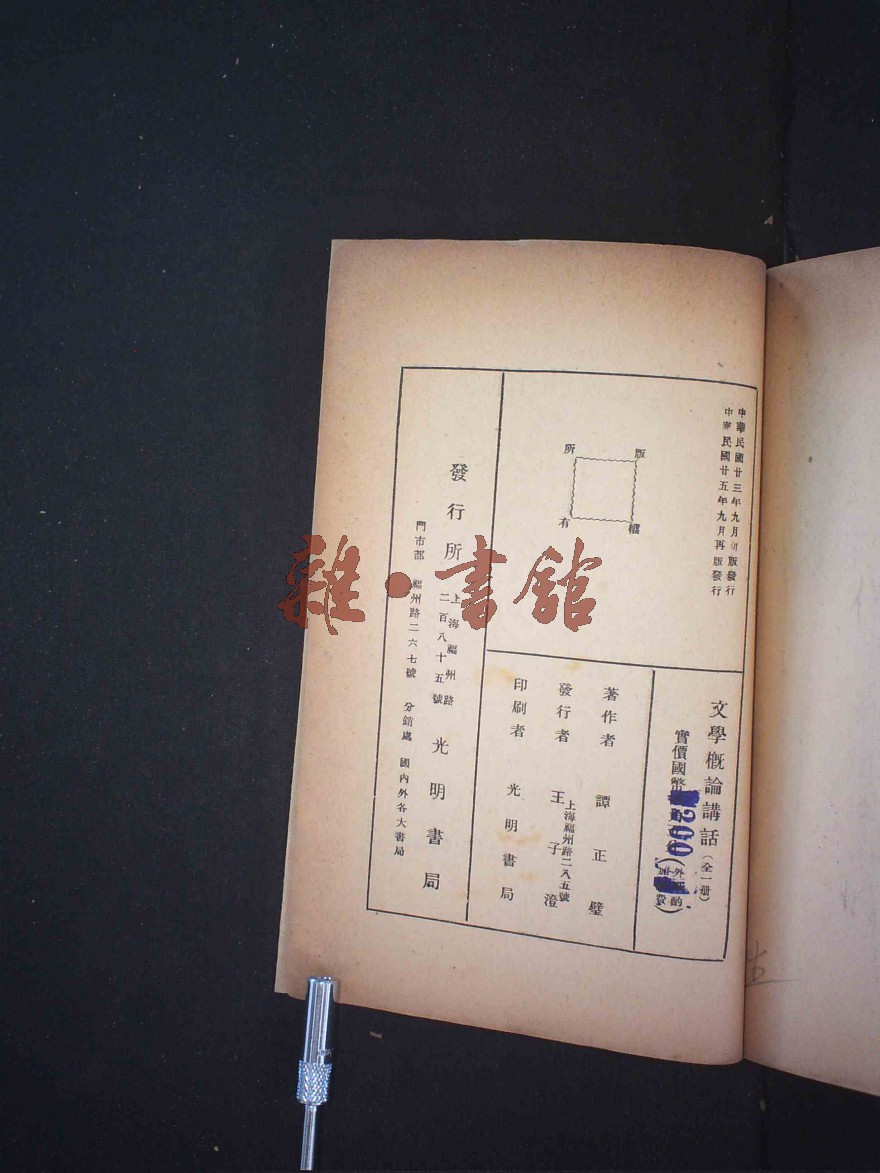 中華民國廿三年九月初版發行
中華民國廿五年九月再版發行
版權所有
文學概論講話(全一册)
實價國幣
200
(外埠酌加 費)
著作者 譚正璧
發行者 王子澄
上海福州路二八五號
印刷者 光明書局
發行所 上海福州路二百八十五號 光明書局
門市部 福州路二六七號 分館處 國內外各大書局
雜·書館